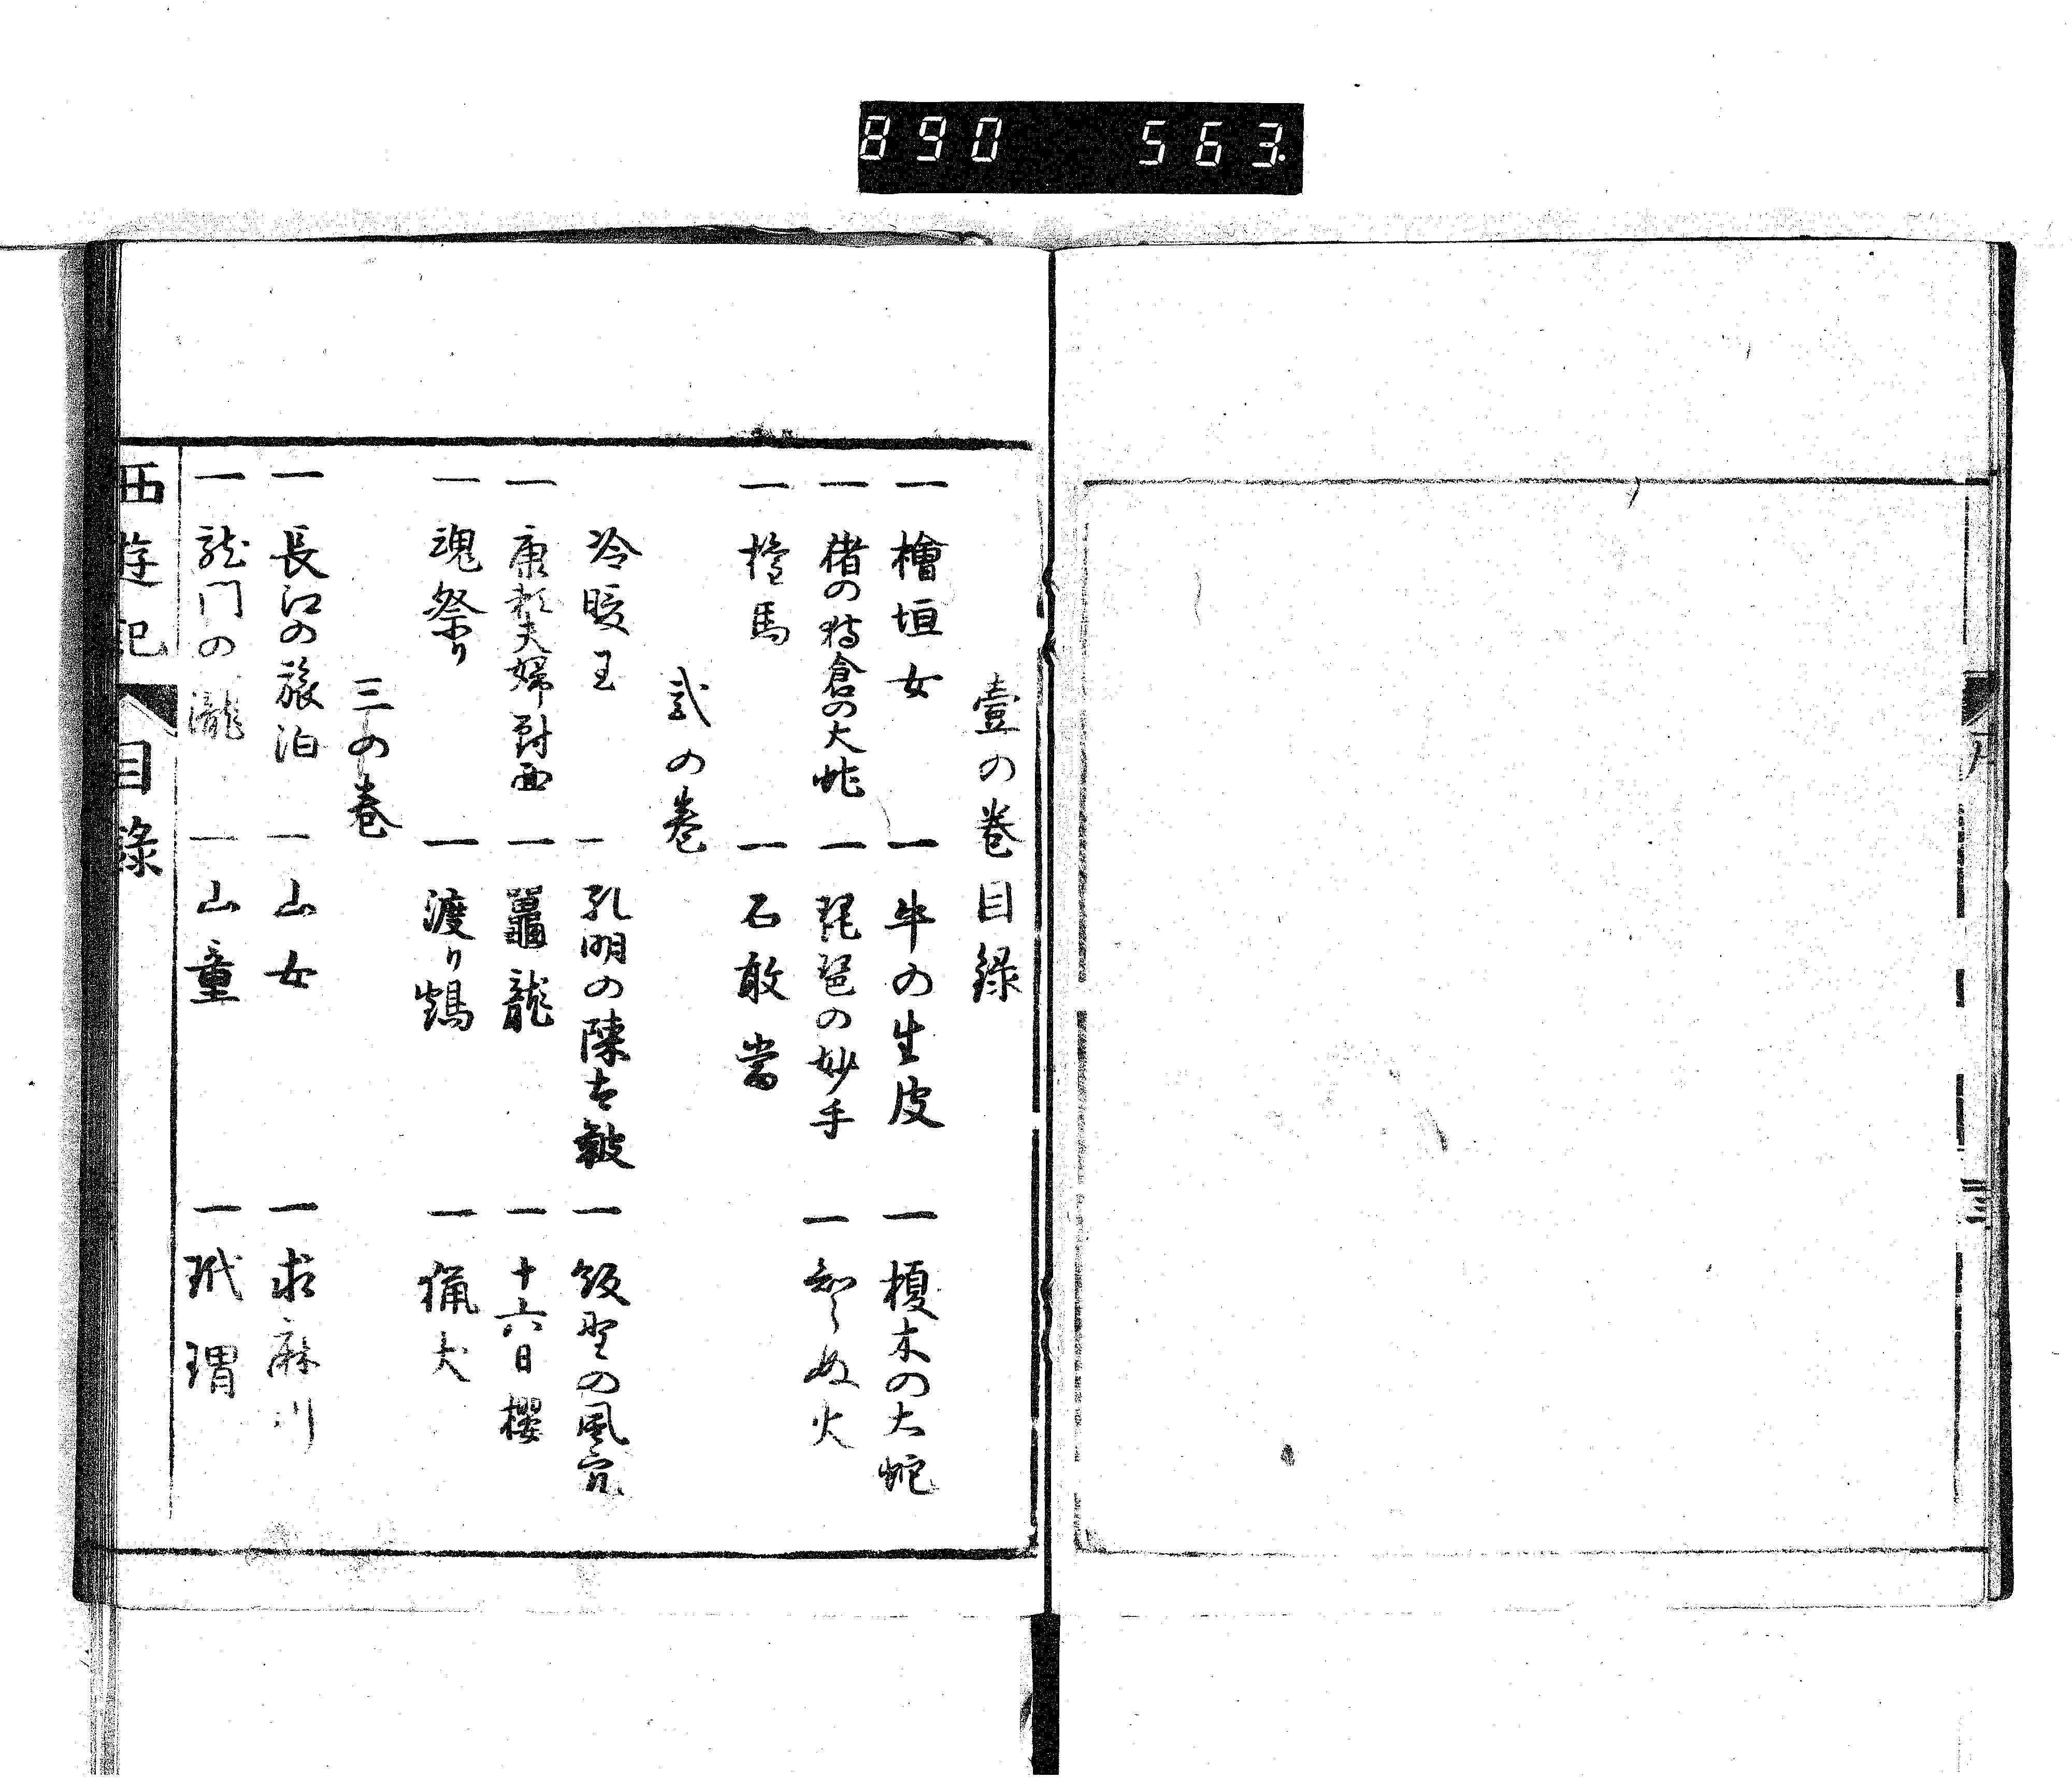 890 563
序
三
壹の巻目録
一 檜垣女 一 牛の生皮 一 榎木の大蛇
一 猪の狩倉の大蛇 一 琵琶の妙手 一 知らぬ火
一 榁馬 一 石敢當
貳の巻
冷暖玉 一 孔明の陳太皷 一 飯野の風穴
一 康頼夫婦対面 一 鼉龍 一 十六日櫻
一 魂祭り 一 渡り鶴 一 猟犬
三の巻
一 長江の旅泊 一 山女 一 求麻川
一 龍門の瀧 一 山童 一 玳瑁
西遊記 目録